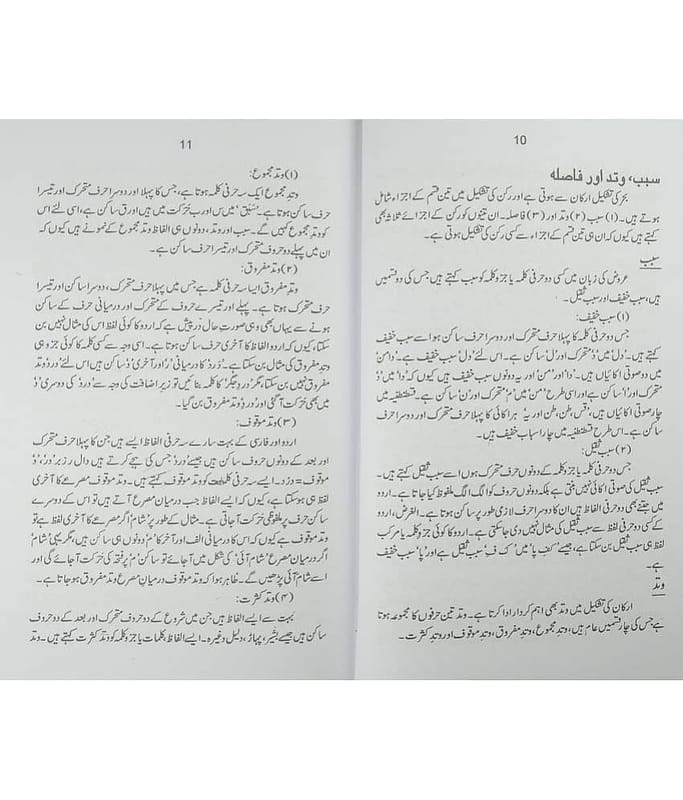 10
سبب، وتد اور فاصلہ
بحر کی تشکیل ارکان سے ہوتی ہے اور رکن کی تشکیل میں تین قسم کے اجزاء شامل
ہوتے ہیں۔ (۱) سبب (۲) وتد اور (۳) فاصلہ۔ ان تینوں کو رکن کے اجزائے ثلاثہ بھی
کہتے ہیں کیوں کہ ان ہی تین قسم کے اجزاء سے کسی رکن کی تشکیل ہوتی ہے۔
سبب
عروض کی زبان میں کسی دو حرفی کلمہ یا جز و کلمہ کو سبب کہتے ہیں جس کی دو قسمیں
ہیں، سبب خفیف اور سبب ثقیل۔
(۱) سبب خفیف:
جس دو حرفی کلمہ کا پہلا حرف متحرک اور دوسرا حرف ساکن ہو اسے سبب خفیف
کہتے ہیں۔ 'دل' میں 'د' متحرک اور 'ل' ساکن ہے۔ اس لئے 'دل' سبب خفیف ہے۔ 'دامن'
میں دو صوتی اکائیاں ہیں۔ 'دا' اور 'من' اور یہ دونوں سبب خفیف ہیں کیوں کہ 'دا' میں 'د'
متحرک اور 'ا' ساکن ہے اور اسی طرح 'من' میں 'م' متحرک اور 'ن' ساکن ہے۔ قسطنطنیہ میں
چار صوتی اکائیاں ہیں، 'قس، طن، طن' اور 'یہ' ہر اکائی کا پہلا حرف متحرک اور دوسرا حرف
ساکن ہے۔ اس طرح قسطنطنیہ میں چار اسباب خفیف ہیں۔
(۲) سبب ثقیل:
جس دو حرفی کلمہ یا جز و کلمہ کے دونوں حرف متحرک ہوں اسے سبب ثقیل کہتے ہیں۔
سبب ثقیل کی صوتی اکائی نہیں بنتی ہے بلکہ دونوں حروف کو الگ الگ ملفوظ کیا جاتا ہے۔ اردو
میں جتنے بھی دو حرفی الفاظ ہیں ان کا دوسرا حرف لازمی طور پر ساکن ہوتا ہے۔ الغرض، اردو
کے کسی دو حرفی لفظ سے سبب ثقیل کی مثال نہیں دی جاسکتی ہے۔ اردو کا کوئی جز و کلمہ یا مرکب
لفظ ہی سبب ثقیل بن سکتا ہے، جیسے 'کفِ پا' میں 'ک ف' سبب ثقیل ہے اور 'پا' سبب خفیف
ہے۔
وتد
ارکان کی تشکیل میں وتد بھی اہم کردار ادا کرتا ہے۔ وتد تین حرفوں کا مجموعہ ہوتا
ہے جس کی چار قسمیں عام ہیں، وتد مجموع، وتد مفروق، وتد موقوف اور وتد کثرت۔
11
(۱) وتد مجموع:
وتد مجموع ایک سہ حرفی کلمہ ہوتا ہے، جس کا پہلا اور دوسرا حرف متحرک اور تیسرا
حرف ساکن ہوتا ہے۔ 'سَبَق' میں س اور ب حرکت میں ہیں اور ق ساکن ہے، اسی لئے اس
کو وتد مجموع کہیں گے۔ سبب اور وتد، دونوں ہی الفاظ وتد مجموع کے نمونے ہیں کیوں کہ
ان میں پہلے دو حروف متحرک اور تیسرا حرف ساکن ہے۔
(۲) وتد مفروق:
وتد مفروق ایسا سہ حرفی کلمہ ہے جس میں پہلا حرف متحرک، دوسرا ساکن اور تیسرا
حرف متحرک ہوتا ہے۔ پہلے اور تیسرے حروف کے متحرک اور درمیانی حرف کے ساکن
ہونے سے یہاں بھی وہی صورتِ حال درپیش ہے کہ اردو کا کوئی لفظ اس کی مثال نہیں بن
سکتا، کیوں کہ اردو الفاظ کا آخری حرف ساکن ہوتا ہے۔ اسی وجہ سے کسی کلمہ کا کوئی جزو ہی
وتد مفروق کی مثال بن سکتا ہے۔ 'درد' کا درمیانی 'ر' اور آخری 'د' ساکن ہیں اس لئے 'درد' وتد
مفروق نہیں بن سکتا، مگر 'دردِ جگر' کا کلمہ بنائیں تو زیر اضافت کی وجہ سے 'درد' کی دوسری 'د'
میں بھی حرکت آگئی اور 'دردِ' وتد مفروق بن گیا۔
(۳) وتد موقوف:
اردو اور فارسی کے بہت سارے سہ حرفی الفاظ ایسے ہیں جن کا پہلا حرف متحرک
اور بعد کے دونوں حروف ساکن ہیں جیسے 'درد' جس کی ہجے کرتے ہیں دال ر زبر 'در'، 'د'
موقوف = درد۔ ایسے سہ حرفی کلمات کو وتد موقوف کہتے ہیں۔ وتد موقوف مصرعے کا آخری
لفظ ہی ہوسکتا ہے، کیوں کہ ایسے الفاظ جب درمیان مصرع آتے ہیں تو اس کے دوسرے
ساکن حرف پر ملفوظی حرکت آجاتی ہے۔ مثال کے طور پر 'شام' اگر مصرعے کا آخری لفظ ہے تو
وتد موقوف ہے کیوں کہ اس کا درمیانی الف اور آخر کا 'م' دونوں ہی ساکن ہیں، مگر یہی 'شام'
اگر درمیان مصرع 'شام آئی' کی شکل میں آجائے تو ساکن 'م' پر فتحہ کی حرکت آجائے گی اور
اسے شامَ آئی پڑھیں گے۔ ظاہر ہوا کہ وتد موقوف درمیانِ مصرع وتد مفروق ہوجاتا ہے۔
(۴) وتد کثرت:
بہت سے ایسے الفاظ ہیں جن میں شروع کے دو حروف متحرک اور بعد کے دو حروف
ساکن ہیں جیسے بشر، پہاڑ، دلیل وغیرہ۔ ایسے الفاظ، کلمات یا جز و کلمہ کو وتد کثرت کہتے ہیں۔ وتد